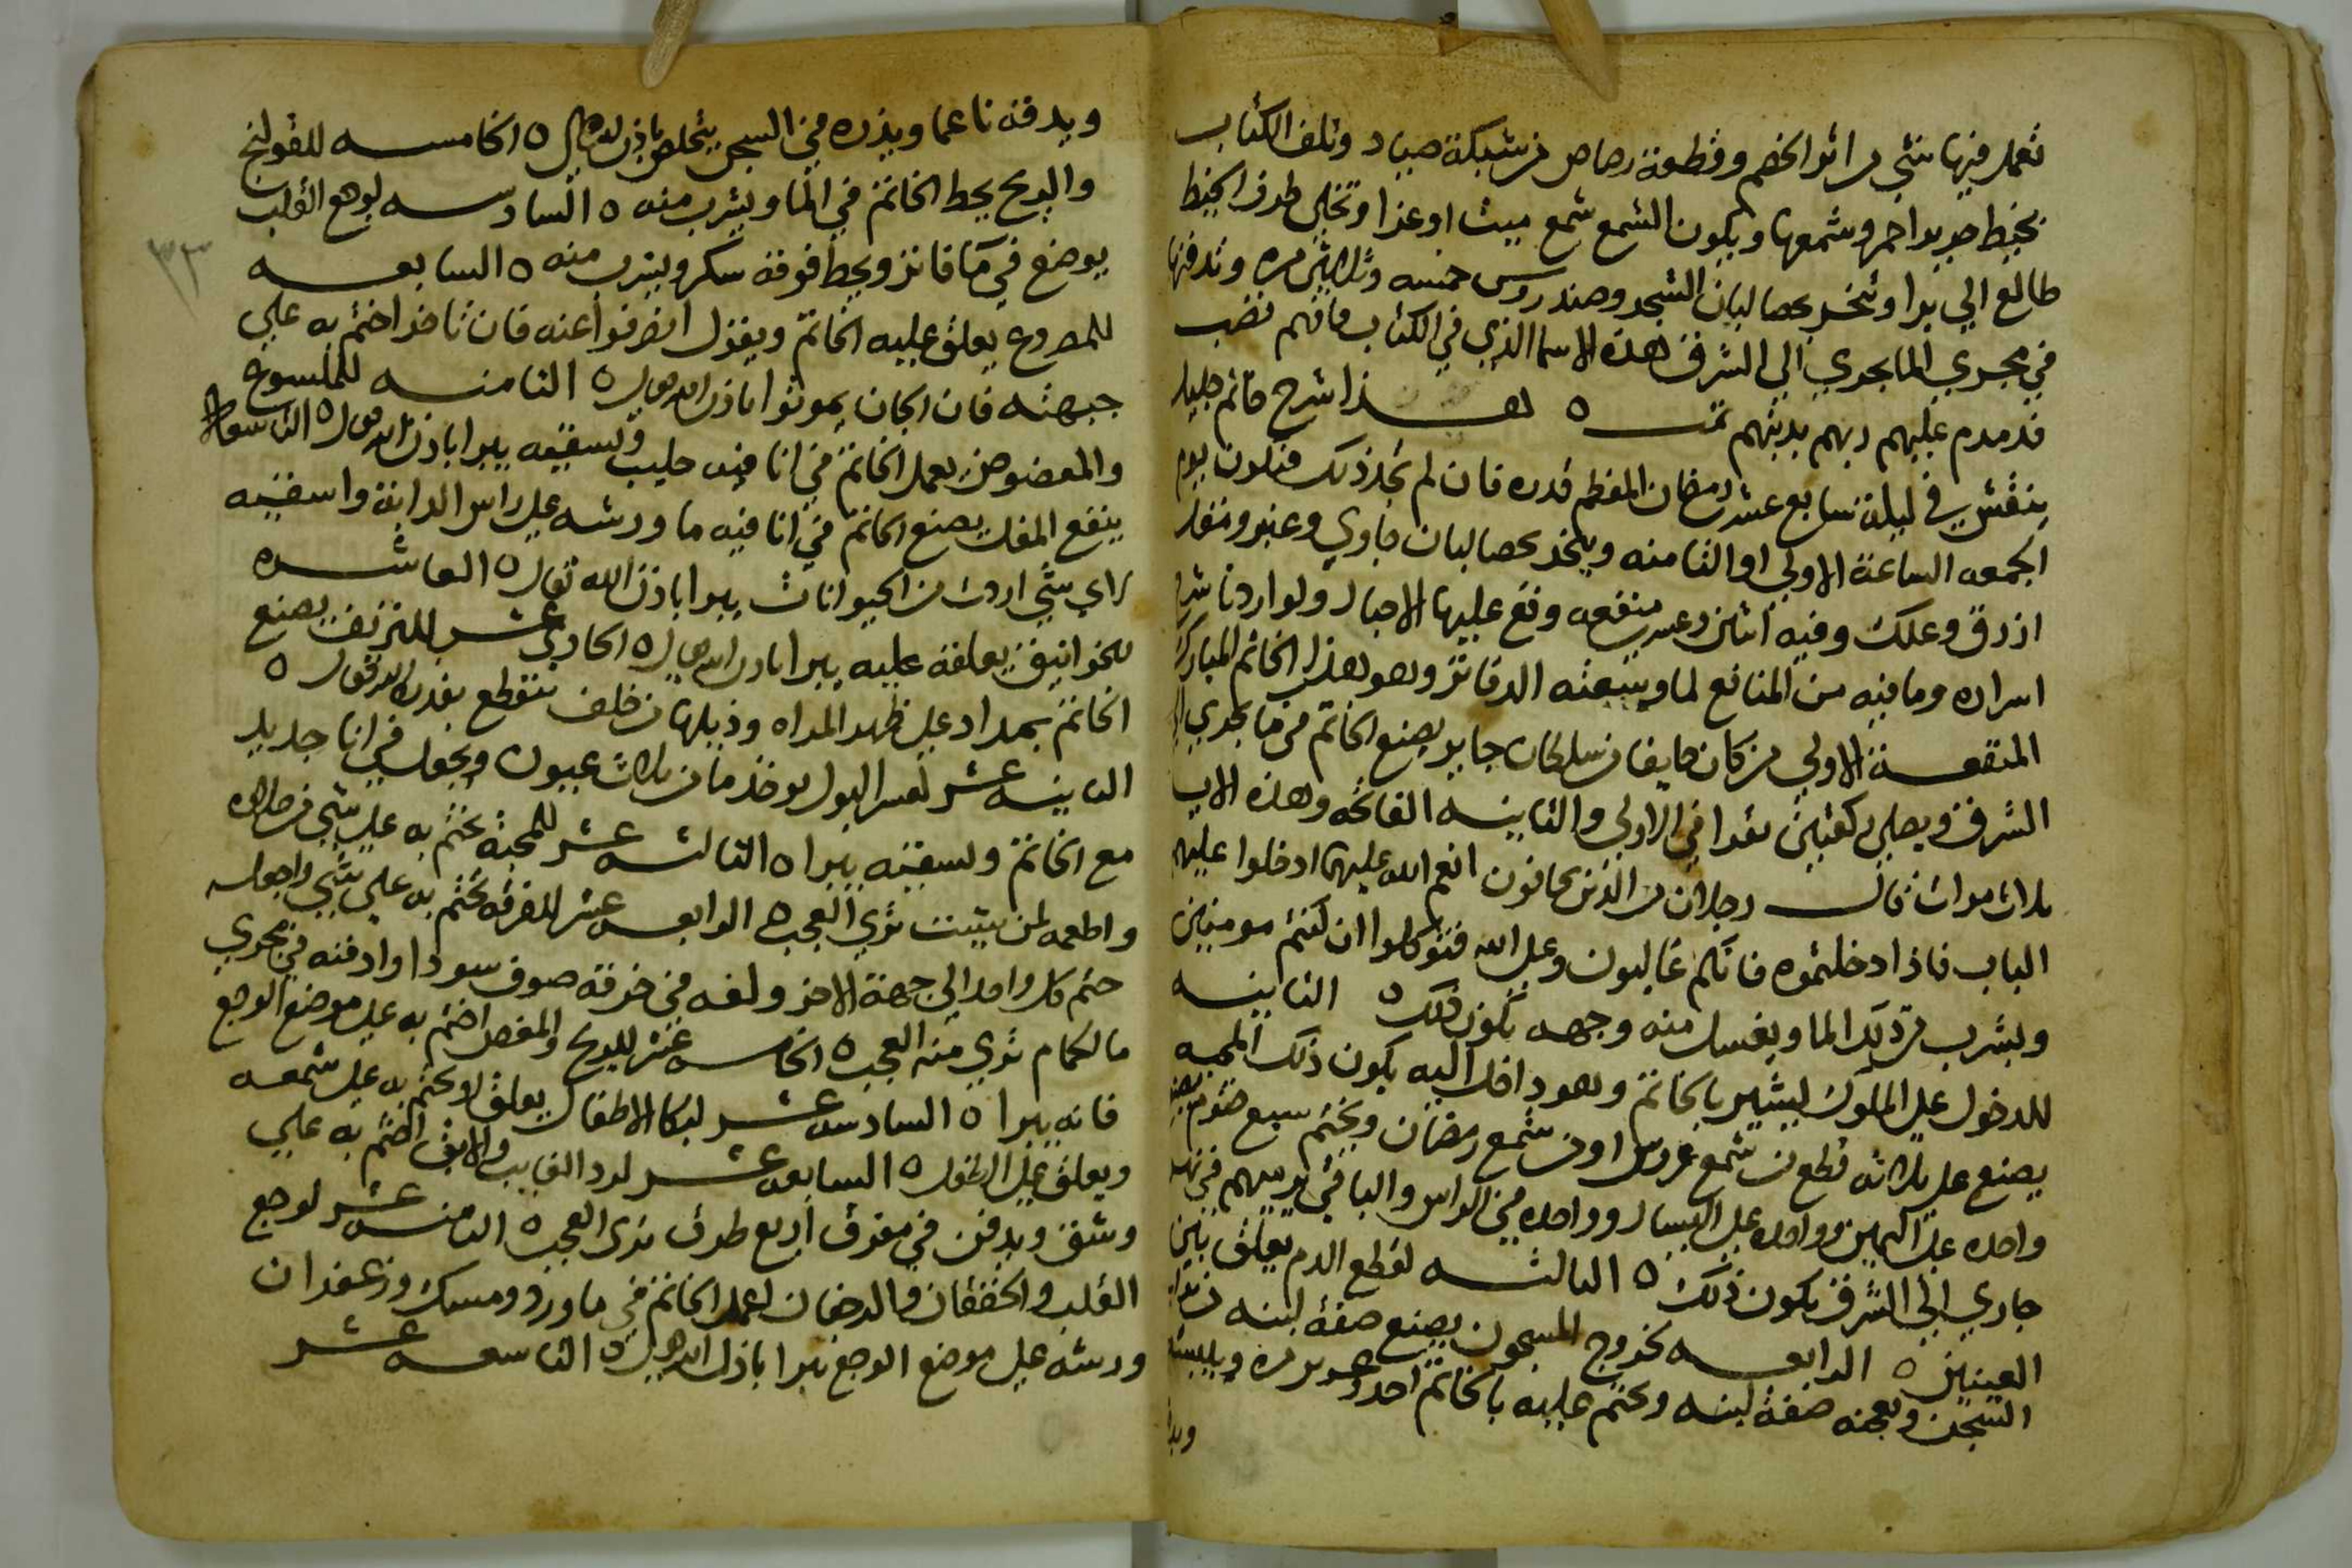 تعمل فيها شي من اثر الخصم وقطعة رصاص من شبكة صياد وتلف الكتاب
بخيط حرير احمر وشمعها ويكون الشمع شمع ميت او عزا وتخلي طرف الخيط
طالع الي برا وتبخر بحصا لبان الشجر وصندروس خمسه وثلاثين مره وتدفنها
في مجري الما يجري الي الشرق هذه الاسما الذي في الكتاب فافهم تصب
فدمدم عليهم ربهم بذنبهم تمت ٥ هذا شرح خاتم جليل
ينقش في ليلة سابع عشر رمضان المعظم قدره فان لم تجد ذلك فيكون يوم
الجمعه الساعة الاولي او الثامنه ويبخر بحصا لبان جاوي وعنبر ومقل
ازرق وعلك وفيه اثنين وعشرين منفعه وقع عليها الاجبار ولو اردنا شرح
اسراره وما فيه من المنافع لما وسعته الدفاتر وهو هذا الخاتم المبارك
المنفعــة الاولي من كان خايفا من سلطان جاير يصنع الخاتم في ما يجري الي
الشرق ويصلي ركعتين يقرا في الاولي والثانيه الفاتحه وهذه الايه
ثلاث مرات قال رجلان من الذين يخافون انعم الله عليهما ادخلوا عليهم
الباب فاذا دخلتموه فانكم غالبون وعلي الله فتوكلوا ان كنتم مومنين
ويشرب من ذلك الما ويغسل منه وجهه يكون ذلك ٥ الثانيه
للدخول علي الملوك ليشير بالخاتم وهو داخل اليه يكون ذلك المحبه
يصنع علي ثلاثه قطع من شمع عروس او من شمع رمضان ويختم سبع ختوم يضع
واحده علي اليمين وواحده علي اليسار وواحده في الراس والباقي يرميهم في نهر
جاري الي الشرق يكون ذلك ٥ الثالثه لقطع الدم يعلق بين
العينين ٥ الرابعه لخروج المسجون يصنع صفة لبنه من تراب
السجن ويعجنه صفة لبنه ويختم عليه بالخاتم احد وعشرين مره وييبسه
ويد
ويدقه ناعما ويذره في السجن يتخلص باذن الله تعالي ٥ الخامسه للقولنج
والريح يحط الخاتم في الما ويشرب منه ٥ السادسه لوجع القلب
يوضع في ما فاتر ويحط فوقه سكر ويشرب منه ٥ السابعه
للمصروع يعلق عليه الخاتم ويقول انصرفوا عنه فان تاخر اختم به علي
جبهته فان الجان يموتوا باذن الله تعالي ٥ الثامنه للملسوع
والمعضوض يعمل الخاتم في انا فيه حليب وتسقيه يبرا باذن الله تعالي ٥ التاسعه
ينفع المغل يصنع الخاتم في انا فيه ما ورشه علي راس الدابة واسقيه
لاي شي اردت من الحيوانات يبرا باذن الله تعالي ٥ العاشره
للخوانيق يعلقه عليه يبرا باذن الله تعالي ٥ الحاديه عشر للنزيف يصنع
الخاتم بمداد علي ظهر المراه وذيلها من خلف ينقطع بقدرة الله تعالي ٥
الثانيه عشر لعسر البول يوخذ ما من ثلاث عيون ويجعل في انا جديد
مع الخاتم وتسقيه يبرا ٥ الثالثه عشر للمحبة تختم به علي شي من حلاوه
واطعمه لمن شيت تري العجب ٥ الرابعه عشر للفرقه تختم به علي شي واجعل
ختم كل واحد الي جهة الاخر ولفه في خرقة صوف سودا وادفنه في مجري
ما الحمام تري منه العجب ٥ الخامسه عشر للريح والمغص اختم به علي موضع الوجع
فانه يبرا ٥ السادسه عشر لبكا الاطفال يعلق او يختم به علي شمعه
ويعلق علي الطفل ٥ السابعه عشر لرد الغايب والابق اختم به علي
وشقف ويدفن في مفرق اربع طرق تري العجب ٥ الثامنه عشر لوجع
القلب والخفقان والرجفان اعمل الخاتم في ما ورد ومسك وزعفران
ورشه علي موضع الوجع يبرا باذن الله تعالي ٥ التاسعه عشر
٣٣